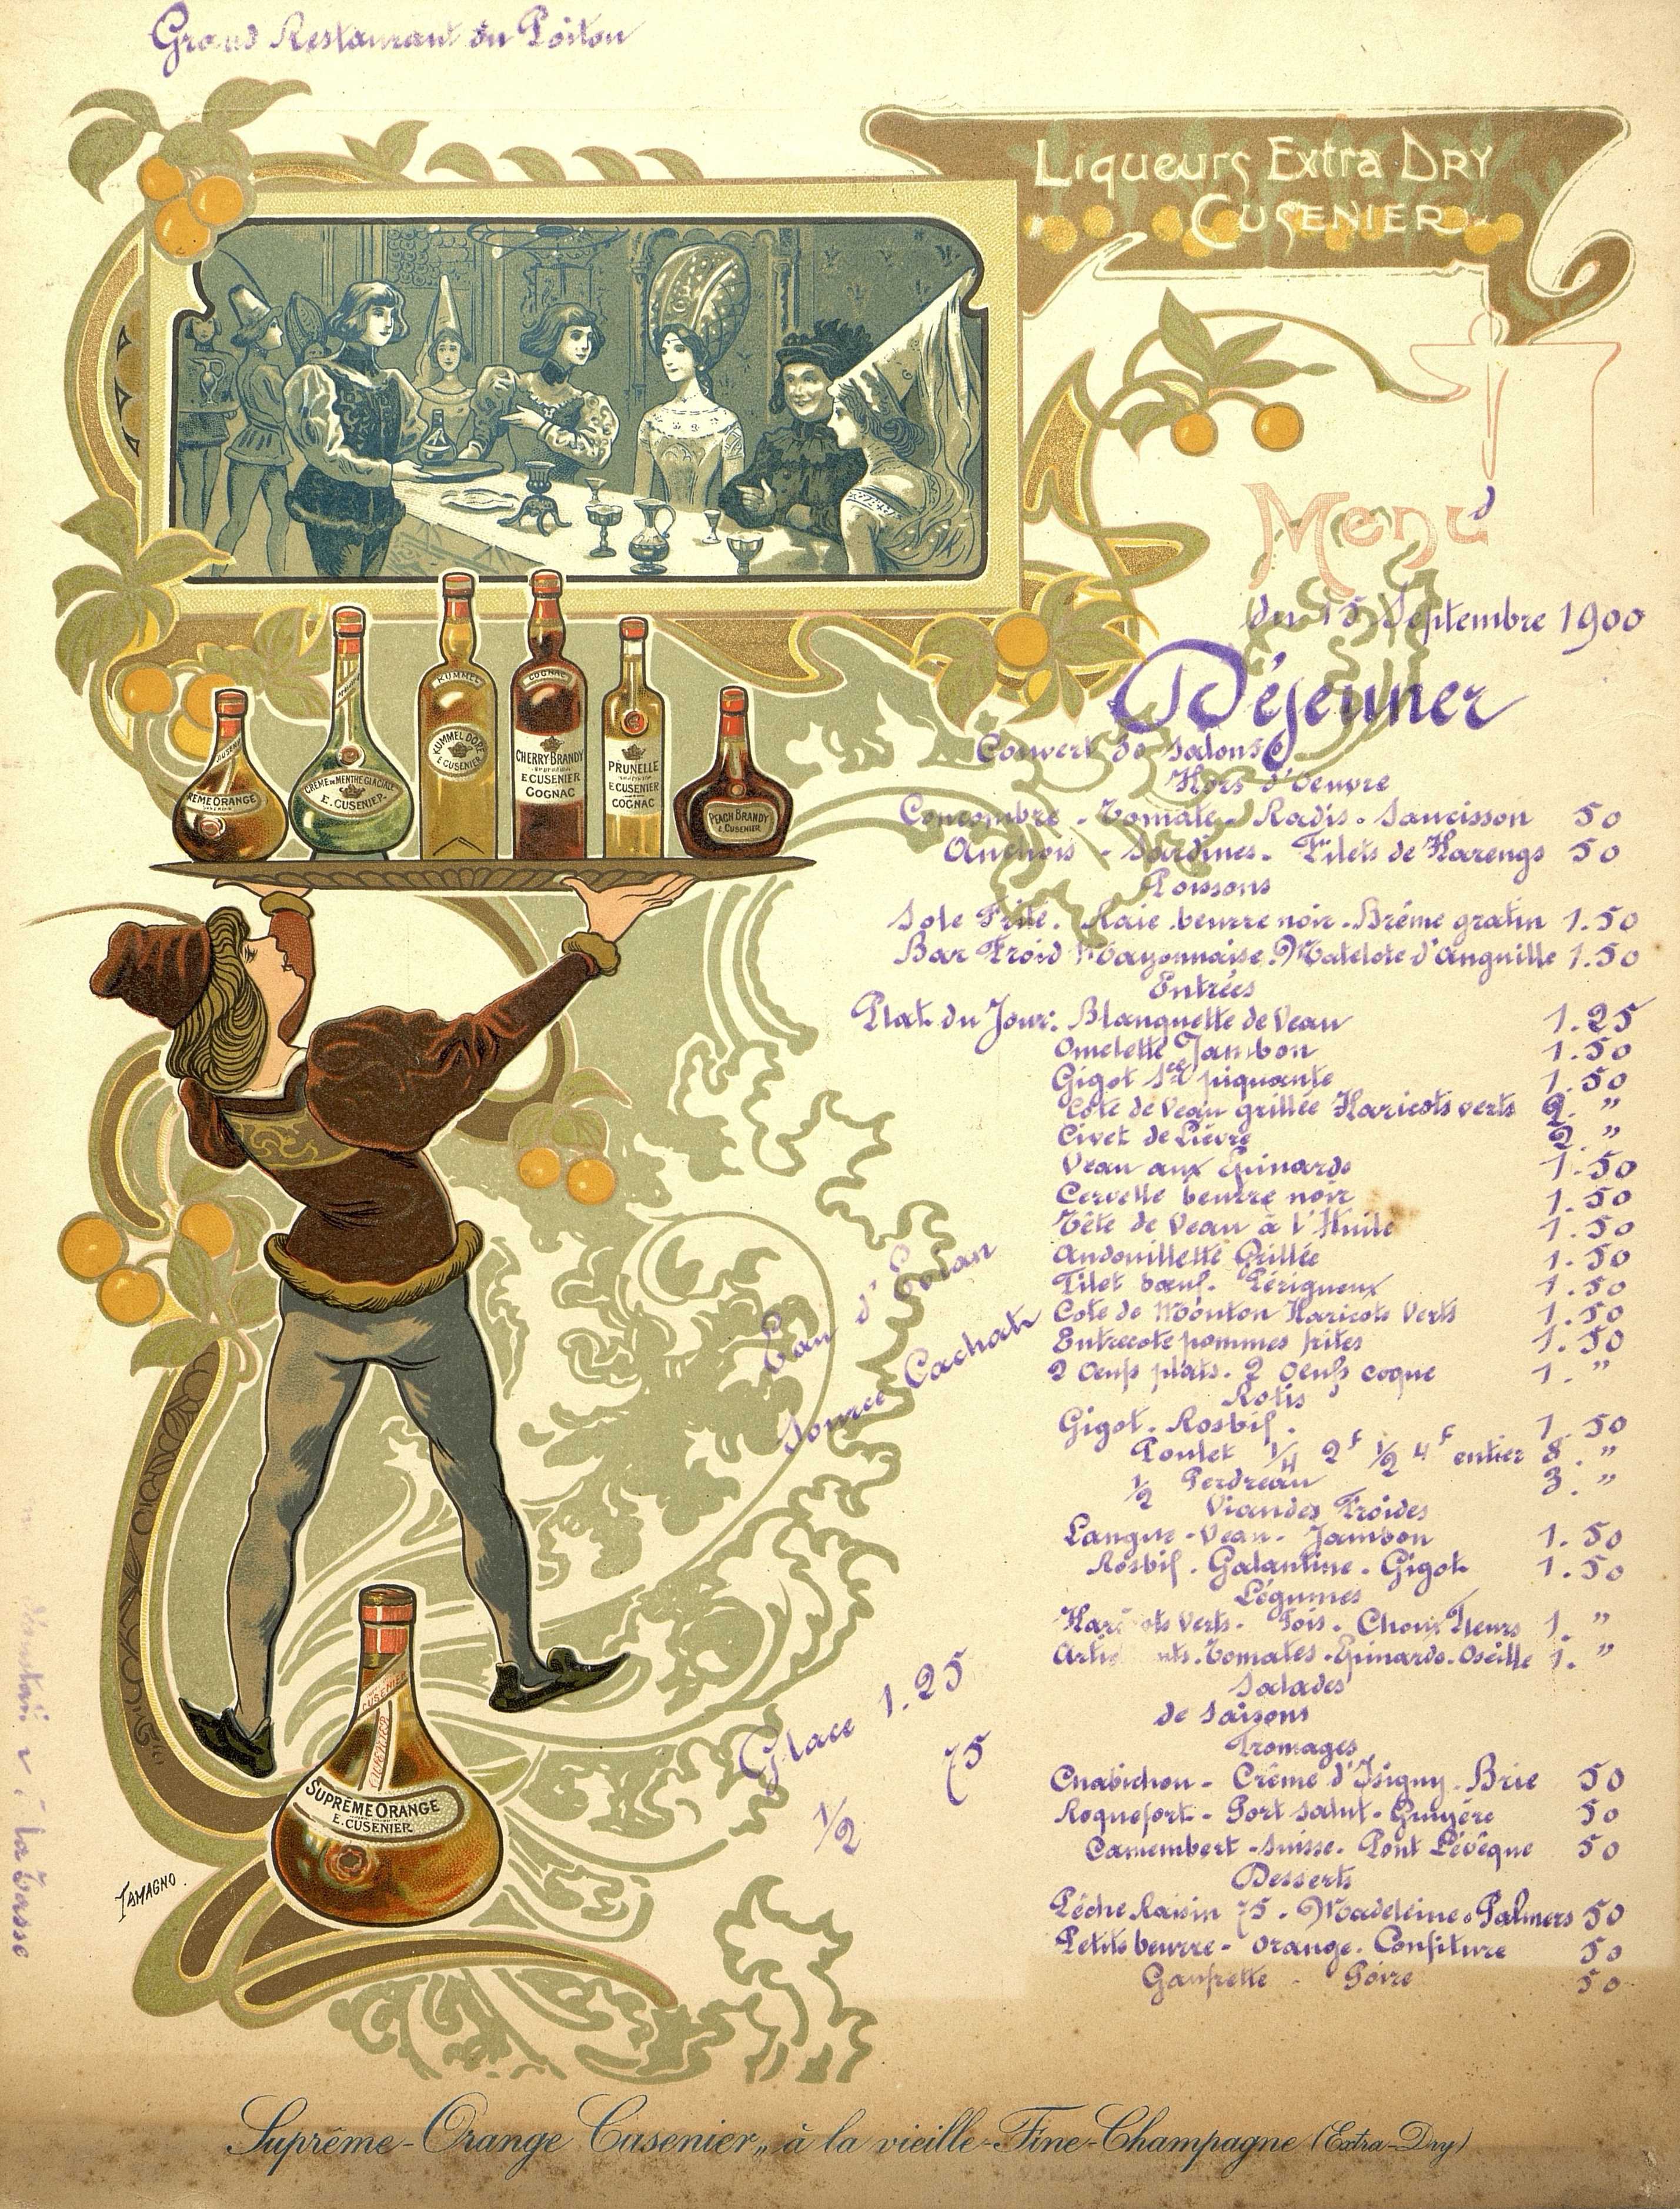 Grand Restaurant du Poitou
Liqueurs Extra Dry
Cusenier
Menu
du 15 Septembre 1900
Déjeuner
Couvert de salons
Hors d'Oeuvre
Concombre - Tomate - Radis - Saucisson 50
Anchois - Sardines - Filets de Harengs 50
Poissons
Sole Frite. Raie beurre noir - Brème gratin 1.50
Bar Froid Mayonnaise. Matelote d'anguille 1.50
Entrées
Plat du Jour: Blanquette de Veau 1.25
Omelette Jambon 1.50
Gigot Sce piquante 1.50
Côte de Veau grillée Haricots verts 2. "
Civet de Lièvre 2. "
Veau aux Epinards 1.50
Cervelle beurre noir 1.50
Tête de Veau à l'Huile 1.50
Andouillette Grillée 1.50
Filet boeuf. Périgueux 1.50
Cote de Mouton Haricots Verts 1.50
Entrecote pommes frites 1.50
2 Oeufs plats. 2 Oeufs coque 1. "
Rotis
Gigot. Rosbif. 1.50
Poulet 1/4 2f 1/2 4f entier 8. "
1/2 Perdreau 3. "
Viandes Froides
Langue - Veau - Jambon 1.50
Rosbif. Galantine. Gigot 1.50
Légumes
Haricots Verts. Pois. Choux Fleurs 1. "
Tomates - Epinards. Oseille 1. "
Salades
de Saisons
Fromages
Chabichou - Crême d'Isigny. Brie 50
Roquefort - Port Salut - Gruyère 50
Camembert - Suisse. Pont Lévêque 50
Desserts
Pêche Raisin 75. Madeleine. Palmers 50
Petits beurre - Orange. Confiture 50
Gaufrette - Poire 50
Eau d'Evian
Source Cachat
Glace 1.25
1/2 75
CUSENIER
CRÈME ORANGE
CRÈME DE MENTHE GLACIALE
E. CUSENIER
KUMMEL
KUMMEL DORÉ
E CUSENIER
COGNAC
CHERRY-BRANDY
E CUSENIER
COGNAC
PRUNELLE
E CUSENIER
COGNAC
PEACH BRANDY
E. CUSENIER
CUSENIER
CUSENIER
SUPRÊME ORANGE
E. CUSENIER
TAMAGNO.
à la Tasse
Suprême-Orange Cusenier„ à la vieille-Fine-Champagne (Extra-Dry)